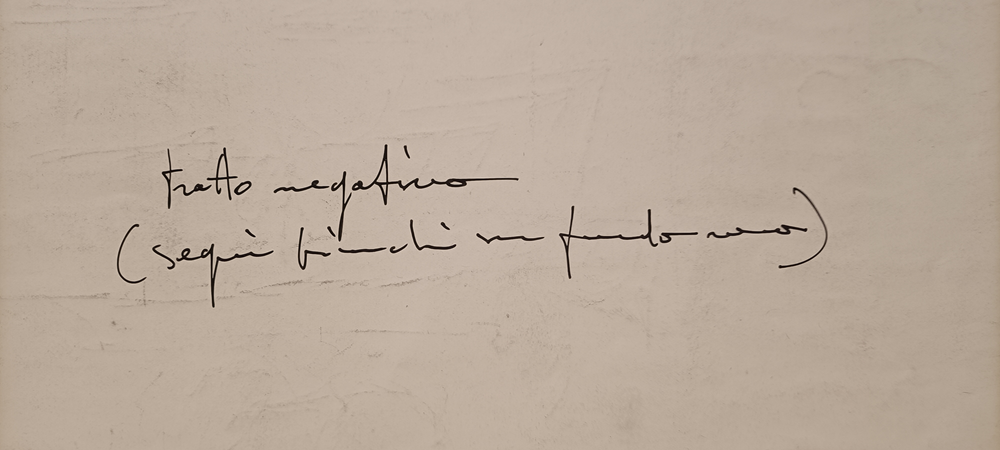 tratto negativo
(segni bianchi su fondo nero)